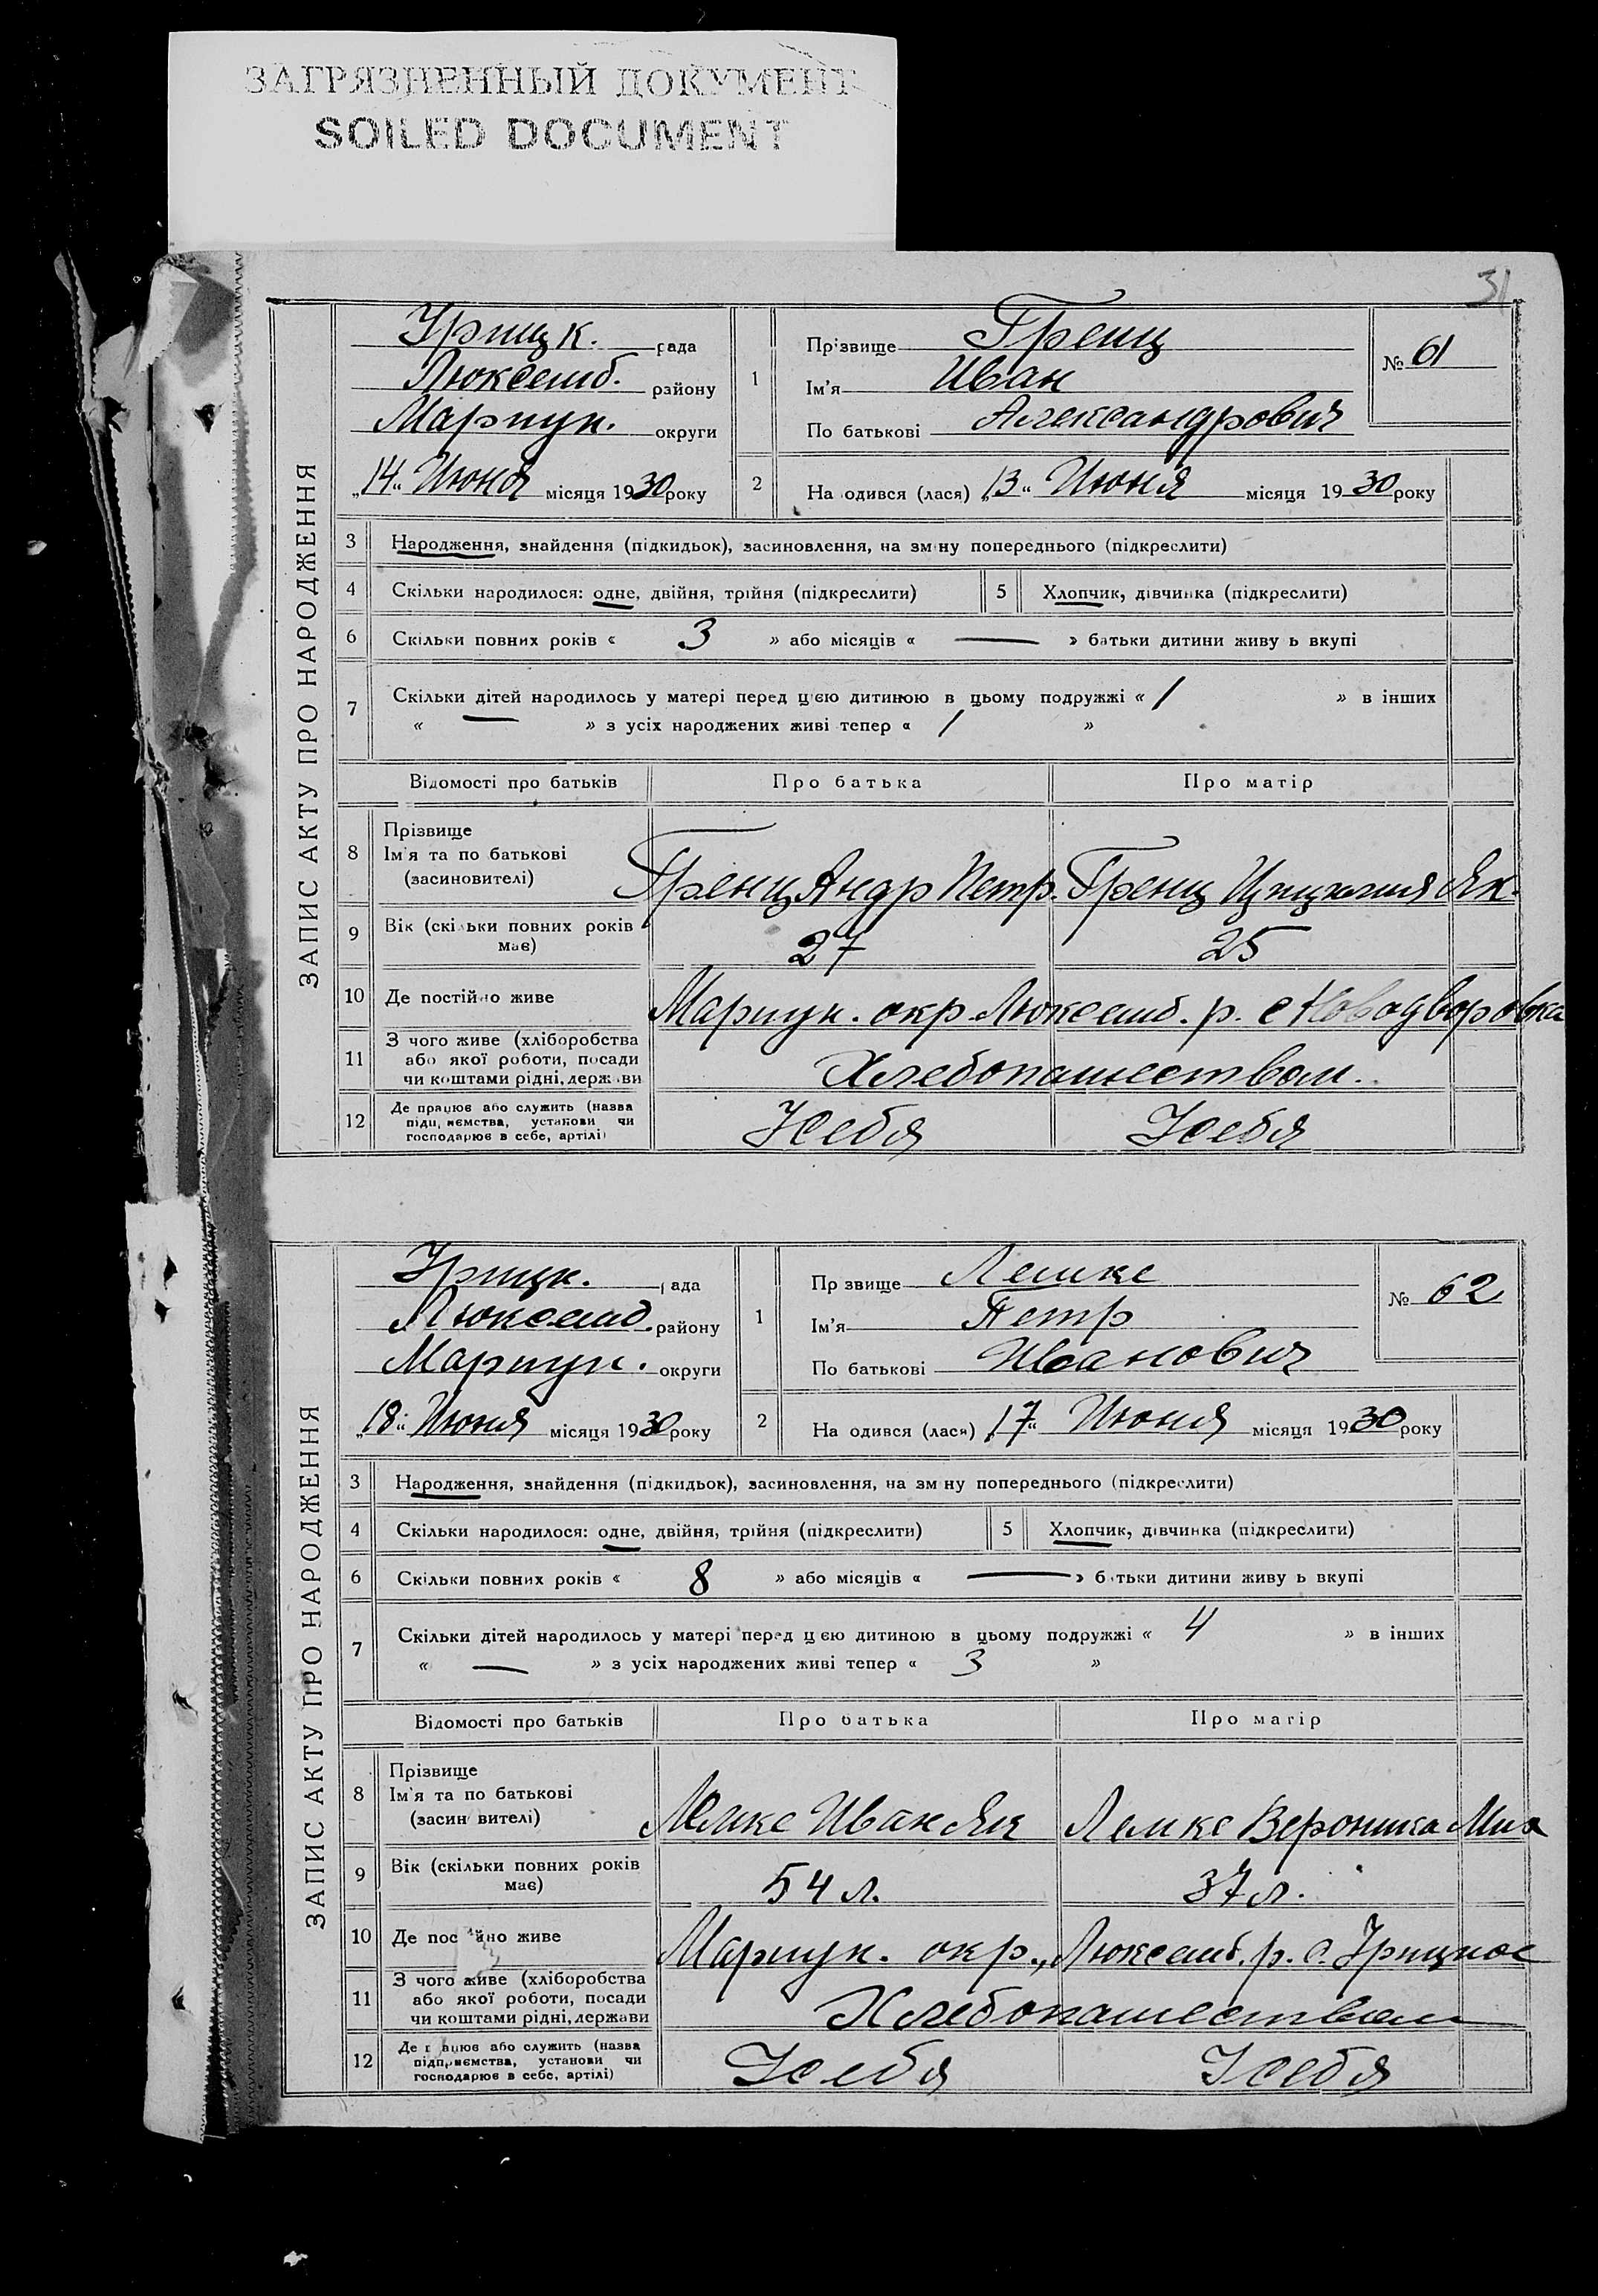 ЗАГРЯЗНЕННЫЙ ДОКУМЕНТ
SOILED DOCUMENT
31
ЗАПИС АКТУ ПРО НАРОДЖЕННЯ
Урицк. рада
Люксемб. району
Мариуп. округи
„14“ Июня місяця 1930 року
1
Прізвище Гренц
Ім'я Иван
По батькові Александрович
№ 61
2
На одився (лася) „13“ Июня місяця 1930 року
3 Народження, знайдення (підкидьок), засиновлення, на зм ну попереднього (підкреслити)
4 Скільки народилося: одне, двійня, трійня (підкреслити) 5 Хлопчик, дівчинка (підкреслити)
6 Скільки повних років « 3 » або місяців « — » батьки дитини живу ь вкупі
7 Скільки дітей народилось у матері перед цією дитиною в цьому подружжі « 1 » в інших
« — » з усіх народжених живі тепер « 1 »
Відомості про батьків Про батька Про матір
8 Прізвище
Ім'я та по батькові
(засиновителі)
Гренц Андр Петр. Гренц Як.
9 Вік (скі ьки повних років
має)
27 25
10 Де постійно живе Мариуп. окр. Люксемб. р. с Новодворовка
11 З чого живе (хліборобства
або якої роботи, посади
чи коштами рідні, держ ви
Хлебопашеством.
12 Де працює або служить (назва
підп, ємства, установи чи
господарює в себе, артілі)
У себя У себя
ЗАПИС АКТУ ПРО НАРОДЖЕННЯ
Урицк. рада
Люксемб. району
Мариуп. округи
„18“ Июня місяця 1930 року
1
Пр звище Лемке
Ім'я Петр
По батькові Иванович
№ 62
2
На одився (лася) „17“ Июня місяця 1930 року
3 Народження, знайдення (підкидьок), засиновлення, на зм ну попереднього (підкреслити)
4 Скільки народилося: одне, двійня, трійня (підкреслити) 5 Хлопчик, дівчинка (підкреслити)
6 Скільки повних років « 8 » або місяців « — » б тьки дитини живу ь вкупі
7 Скільки дітей народилось у матері перед ц єю дитиною в цьому подружжі « 4 » в інших
« — » з усіх народжених живі тепер « 3 »
Відомості про батьків Про батька Про матір
8 Прізвище
Ім'я та по батькові
(засин вителі)
Лемке Иван Як Лемке Вероника Мих
9 Вік (скільки повних років
має)
54 л. 37 л.
10 Де пос ійно живе Мариуп. окр., Люксемб. р. с. Урицкое
11 З чого живе (хліборобства
або якої роботи, посади
чи коштами рідні, держави
Хлебопашеством
12 Де п ацює або служить (назва
підприємства, установи чи
господарює в себе, артілі)
У себя У себя